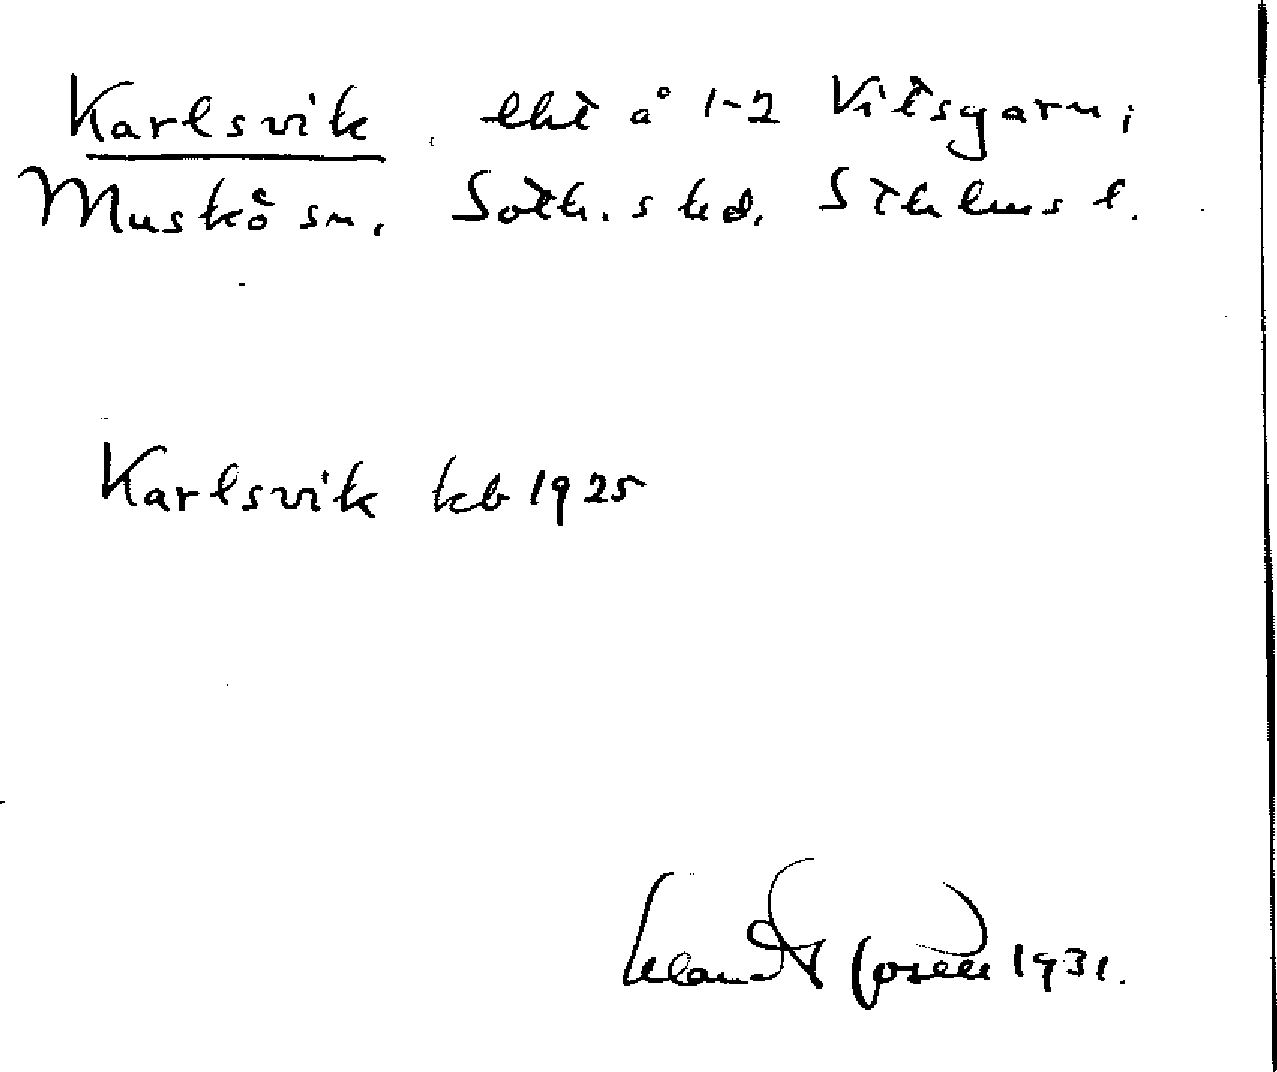 Karlsvik, lht å 1-2 Vitsgarn i
Muskö sn. Soth. shd. Sthlms l.
Karlsvik kb 1925
1931.